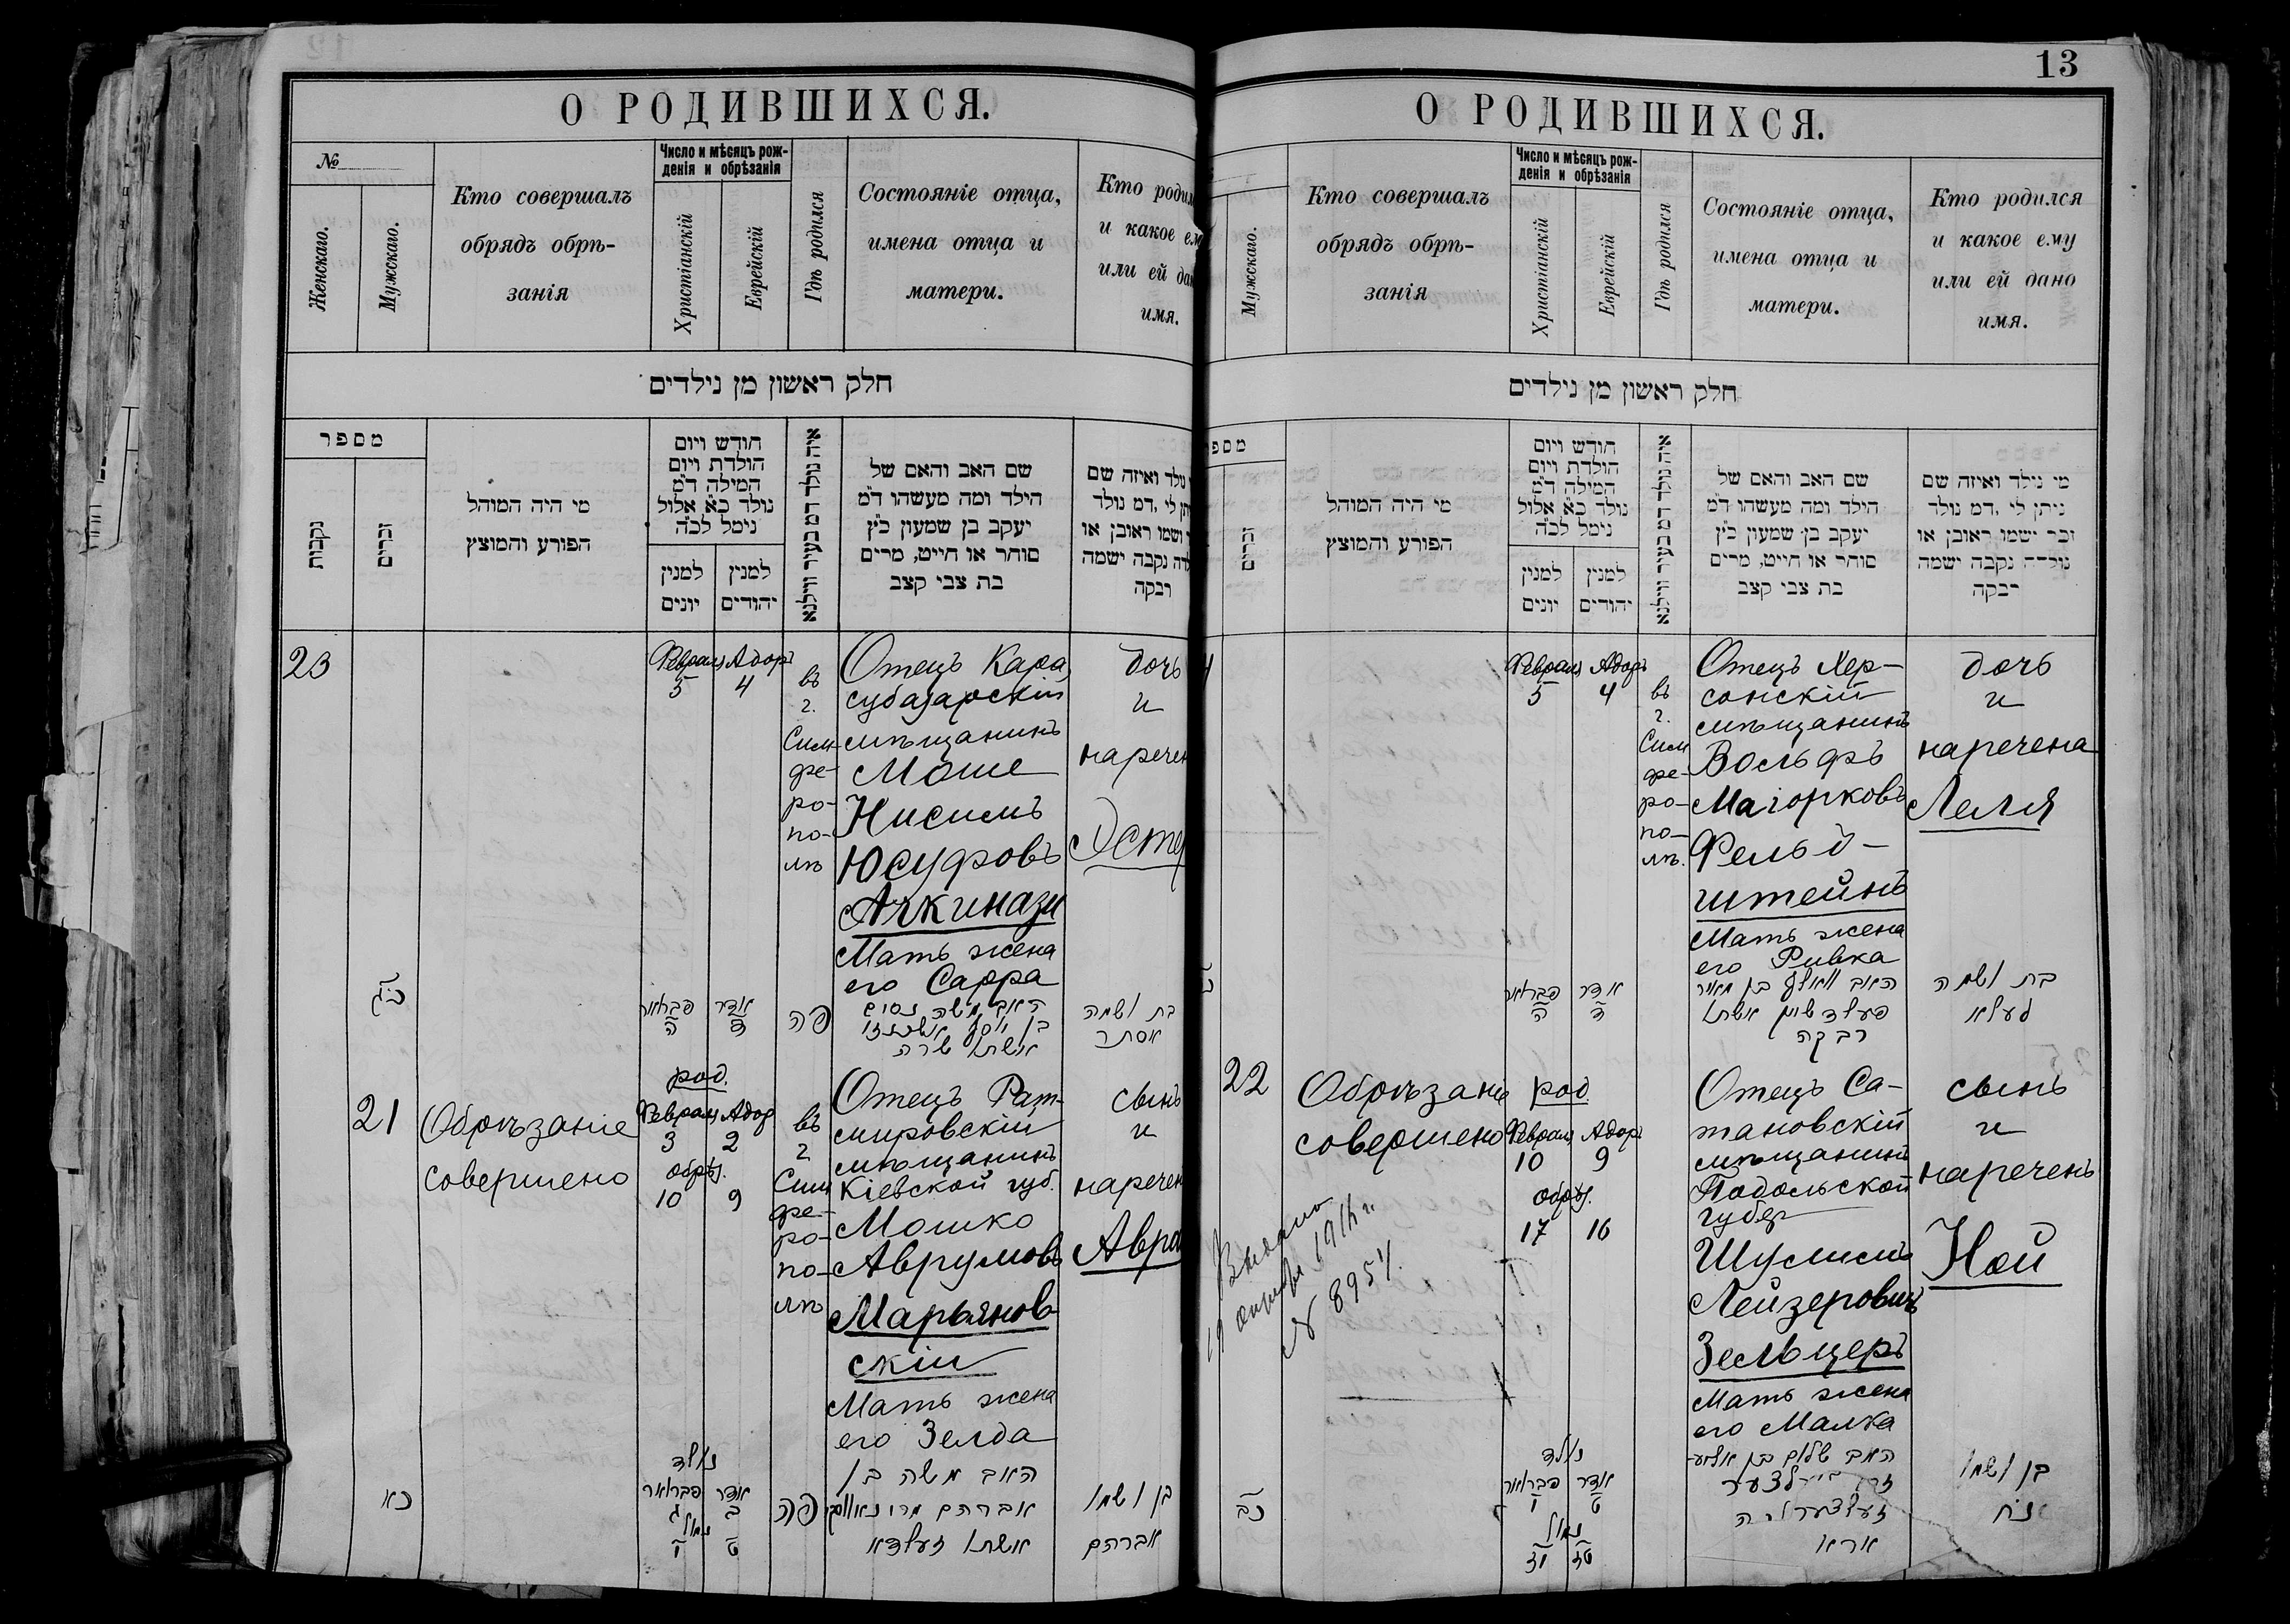 О РОДИВШИХСЯ.
№
Женскаго.
Мужскаго.
Кто совершалъ
обрядъ обрѣ-
занія
Число и мѣсяцъ рож-
денія и обрѣзанія
Христіанскій
Еврейскій
Гдѣ родился
Состояніе отца,
имена отца и
матери.
Кто родил
и какое ем
или ей да
имя.
חלק ראשון מן נילדים
מספר
נקבות
זכרים
מי היה המוהל
הפורע והמוצץ
חודש ויום
הולדת ויום
המילה ד״מ
נולד כ״א אלול
נימל לכ״ה
למנין
יונים
למנין
יהודים
איה נולד דמ בעיר ווילנא
שם האב והאם של
הילד ומה מעשהו ד״מ
יעקב בן שמעון כ״ץ
סוחר או חייט, מרים
בת צבי קצב
נולד ואיזה שם
תן לי ,דמ נולד
ושמו ראובן או
לדה נקבה ישמה
רבקה
23
Февраля Адоръ
5 4
въ
г.
Сим-
фе-
ро-
по-
лѣ
Отецъ Кара
субазарскій
мѣщанинъ
Моше
Нисимъ
Юсуфовъ
Ачкинази
Мать жена
его Сарра
дочь
и
наречен
Эсте
כג
פבראר
ה
אדר
ד
פה
האב משה נסים
בן יוסף אשכנזי
אשתו שרה
בת ושמה
אסתר
21
Обрѣзаніе
совершено
род.
Февраля Адор
3 2
обрѣз.
10 9
въ
г
Сим
фе-
ро-
по-
лѣ
Отецъ Рат-
мировскій
мѣщанинъ
Кіевской губ.
Мошко
Аврумовъ
Марьянов-
скій
Мать жена
его Зелда
сынъ
и
наречен
Авра
כא
נולד
פבראר אדר
ג ב
נמול
י ט
פה
האב משה בן
אברהם
אשתו זעלדא
בן ושמו
אברהם
13
О РОДИВШИХСЯ.
Мужскаго.
Кто совершалъ
обрядъ обрѣ-
занія
Число и мѣсяцъ рож-
денія и обрѣзанія
Христіанскій
Еврейскій
Гдѣ родился
Состояніе отца,
имена отца и
матери.
Кто родился
и какое ему
или ей дано
имя.
חלק ראשון מן נילדים
מספ
זכרים
מי היה המוהל
הפורע והמוצץ
חודש ויום
הולדת ויום
המילה ד״מ
נולד כ״א אלול
נימל לכ״ה
למנין
יונים
למנין
יהודים
איה נולד דמ בעיר ווילנא
שם האב והאם של
הילד ומה מעשהו ד״מ
יעקב בן שמעון כ״ץ
סוחר או חייט, מרים
בת צבי קצב
מי נילד ואיזה שם
ניתן לי ,דמ נולד
זכר ישמו ראובן או
נולדה נקבה ישמה
רבקה
Февраля Адоръ
5 4
въ
г.
Сим
фе-
ро-
по-
лѣ.
Отецъ Хер-
сонскій
мѣщанинъ
Вольфъ
Маіорковъ
Фельд-
штейнъ
Мать жена
его Ривка
дочь
и
наречена
Леля
פבראר
ה
אדר
ד
האב וואלף בן מאיר
פעלדשטיין אשתו
רבקה
בת ושמה
לעלא
22
Обрѣзаніе
совершено
род
Февраля Адоръ
10 9
обрѣз.
17 16
Отецъ Са-
тановскій
мѣщанинъ
Подольской
губер
Шулимъ
Лейзеровичъ
Зельцеръ
Мать жена
его Малка
сынъ
и
нареченъ
Ной
Выдано
№ 8954.
כב
נולד
פבראר אדר
י ט
נמול
יז טז
האב שלום בן אליע-
בן ושמו
נח